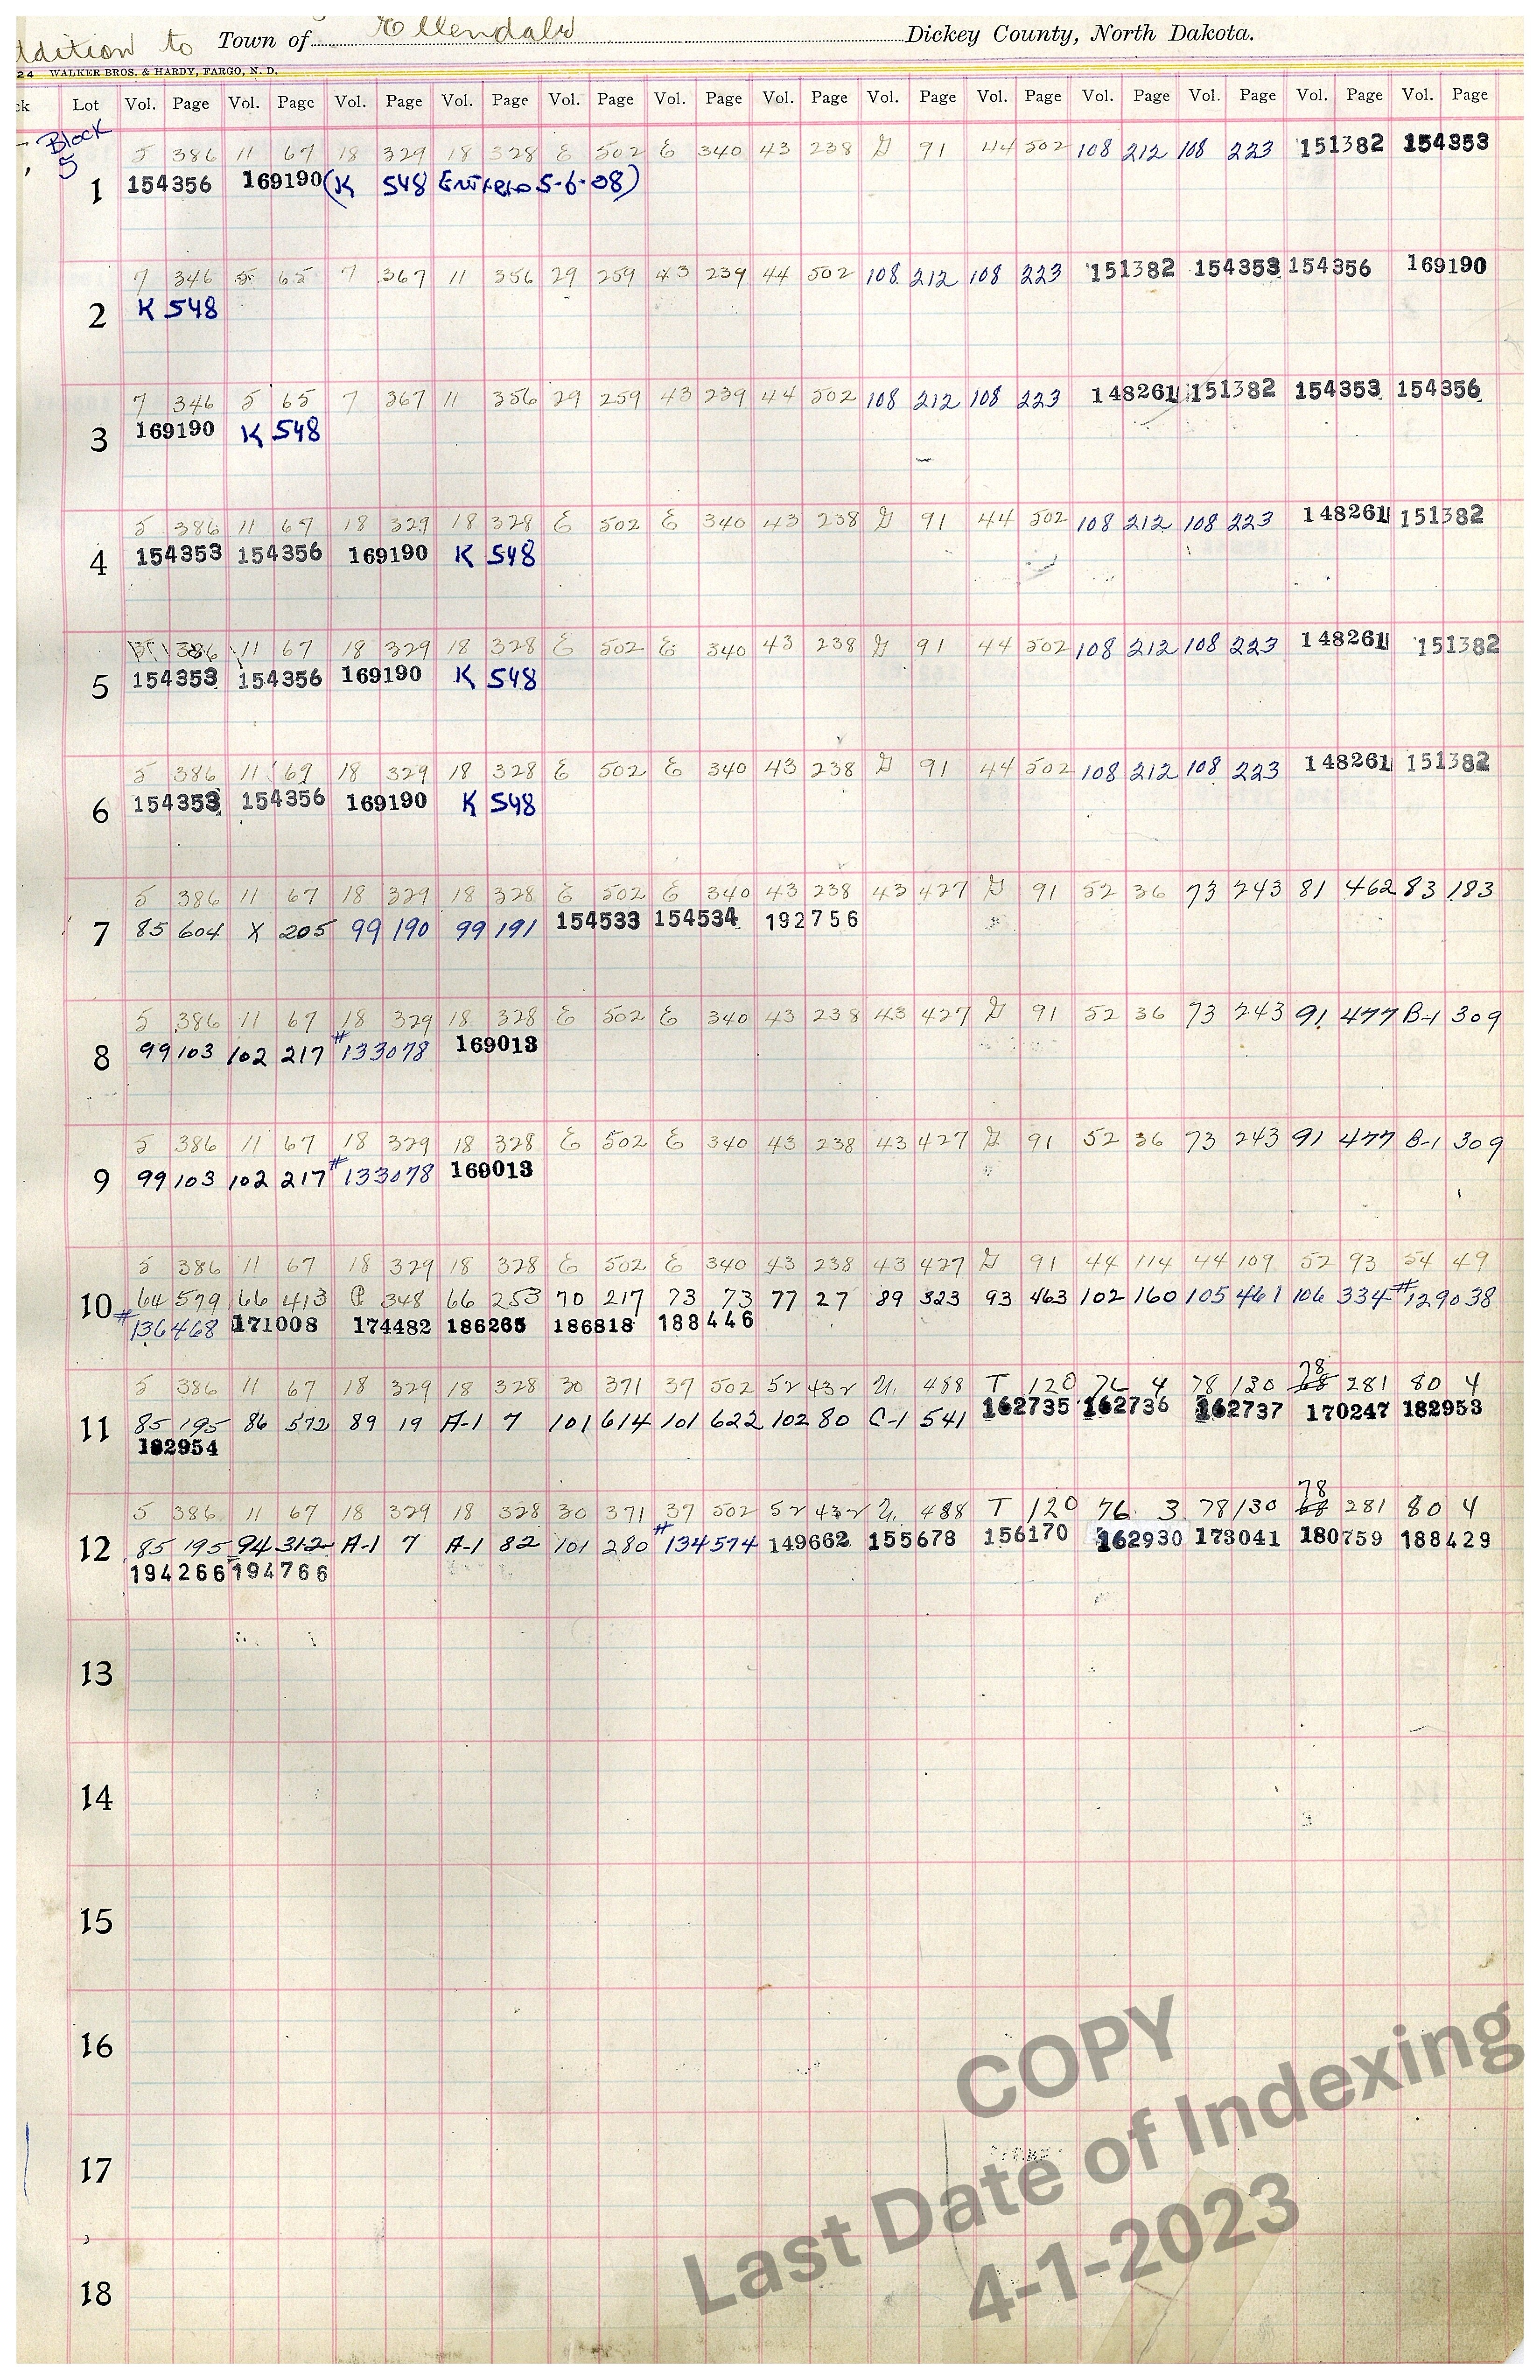 ddition to Town of Ellendale Dickey County, North Dakota.
24 WALKER BROS. & HARDY, FARGO, N. D.
ck Lot Vol. Page Vol. Page Vol. Page Vol. Page Vol. Page Vol. Page Vol. Page Vol. Page Vol. Page Vol. Page Vol. Page Vol. Page Vol. Page
Block 5
5 386 11 67 18 329 18 328 E 502 E 340 43 238 G 91 44 502 108 212 108 223 151382 154353
1 154356 169190 (K 548 Entered 5-6-08)
7 346 5 65 7 367 11 356 29 259 43 239 44 502 108 212 108 223 151382 154353 154356 169190
2 K 548
7 346 5 65 7 367 11 356 29 259 43 239 44 502 108 212 108 223 148261 151382 154353 154356
3 169190 K 548
5 386 11 67 18 329 18 328 E 502 E 340 43 238 G 91 44 502 108 212 108 223 148261 151382
4 154353 154356 169190 K 548
386 11 67 18 329 18 328 E 502 E 340 43 238 G 91 44 502 108 212 108 223 148261 151382
5 154353 154356 169190 K 548
5 386 11 69 18 329 18 328 E 502 E 340 43 238 G 91 44 502 108 212 108 223 148261 151382
6 154353 154356 169190 K 548
5 386 11 67 18 329 18 328 E 502 E 340 43 238 43 427 G 91 52 36 73 243 81 462 83 183
7 85 604 X 205 99 190 99 191 154533 154534 192756
5 386 11 67 18 329 18 328 E 502 E 340 43 238 43 427 G 91 52 36 73 243 91 477 B-1 309
8 99 103 102 217 #133078 169013
5 386 11 67 18 329 18 328 E 502 E 340 43 238 43 427 G 91 52 36 73 243 91 477 B-1 309
9 99 103 102 217 #133078 169013
5 386 11 67 18 329 18 328 E 502 E 340 43 238 43 427 G 91 44 114 44 109 52 93 54 49
10 64 579 66 413 P 348 66 253 70 217 73 73 77 27 89 323 93 463 102 160 105 461 106 334 #129038
#136468 171008 174482 186265 186818 188446
5 386 11 67 18 329 18 328 30 371 37 502 52 432 U. 488 T 120 76 4 78 130 78 281 80 4
11 85 195 86 572 89 19 A-1 7 101 614 101 622 102 80 C-1 541 162735 162736 162737 170247 182953
182954
5 386 11 67 18 329 18 328 30 371 37 502 52 432 U. 488 T 120 76 3 78 130 78 281 80 4
12 85 195 94 312 A-1 7 A-1 82 101 280 #134574 149662 155678 156170 162930 173041 180759 188429
194266 194766
13
14
15
16
17
18
COPY
Last Date of Indexing
4-1-2023